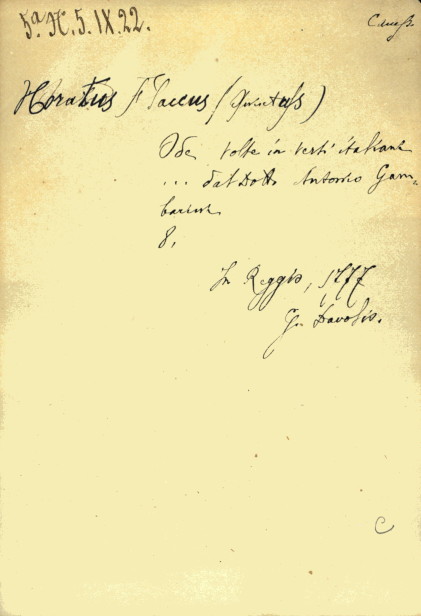 5ª H. 5. IX. 22.
Horatius Flaccus (Quintus)
Ode, volte in versi italiani
... dal Dott. Antonio Gam-
barini
8,
In Reggio, 1777
Gu Davolio.
C